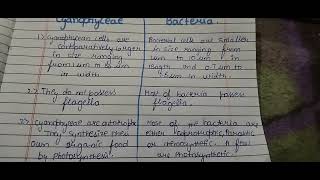 Cyanophyceae
Bacteria
1) Cyanophycean cells are
comparatively larger
in size ranging
from 1um to
in width.
Bacterial cells are smaller
in size ranging from
1um to 10 um in
length and 0.7 um to
um in width
2.) They do not possess
flagella
Most of bacteria possess
flagella.
3.) Cyanophyceae are autotrophs
They synthesize their
own organic food
by photosynthesis.
Most of the bacteria are
either saprotrophic, Parasitic
or chemosynthetic. A few
are photosynthetic.